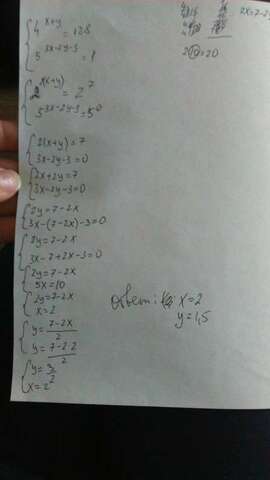 4^{x+y} = 128
5^{3x-2y-3} = 1
2^{2(x+y)} = 2^7
5^{3x-2y-3} = 5^0
2(x+y) = 7
3x-2y-3=0
2x+2y=7
3x-2y-3=0
2y=7-2x
3x-(7-2x)-3=0
2y=7-2x
3x-7+2x-3=0
2y=7-2x
5x=10
2y=7-2x
x=2
y=7-2x/2
y=7-2·2/2
y=3/2
x=2
Ответ: x=2
y=1,5